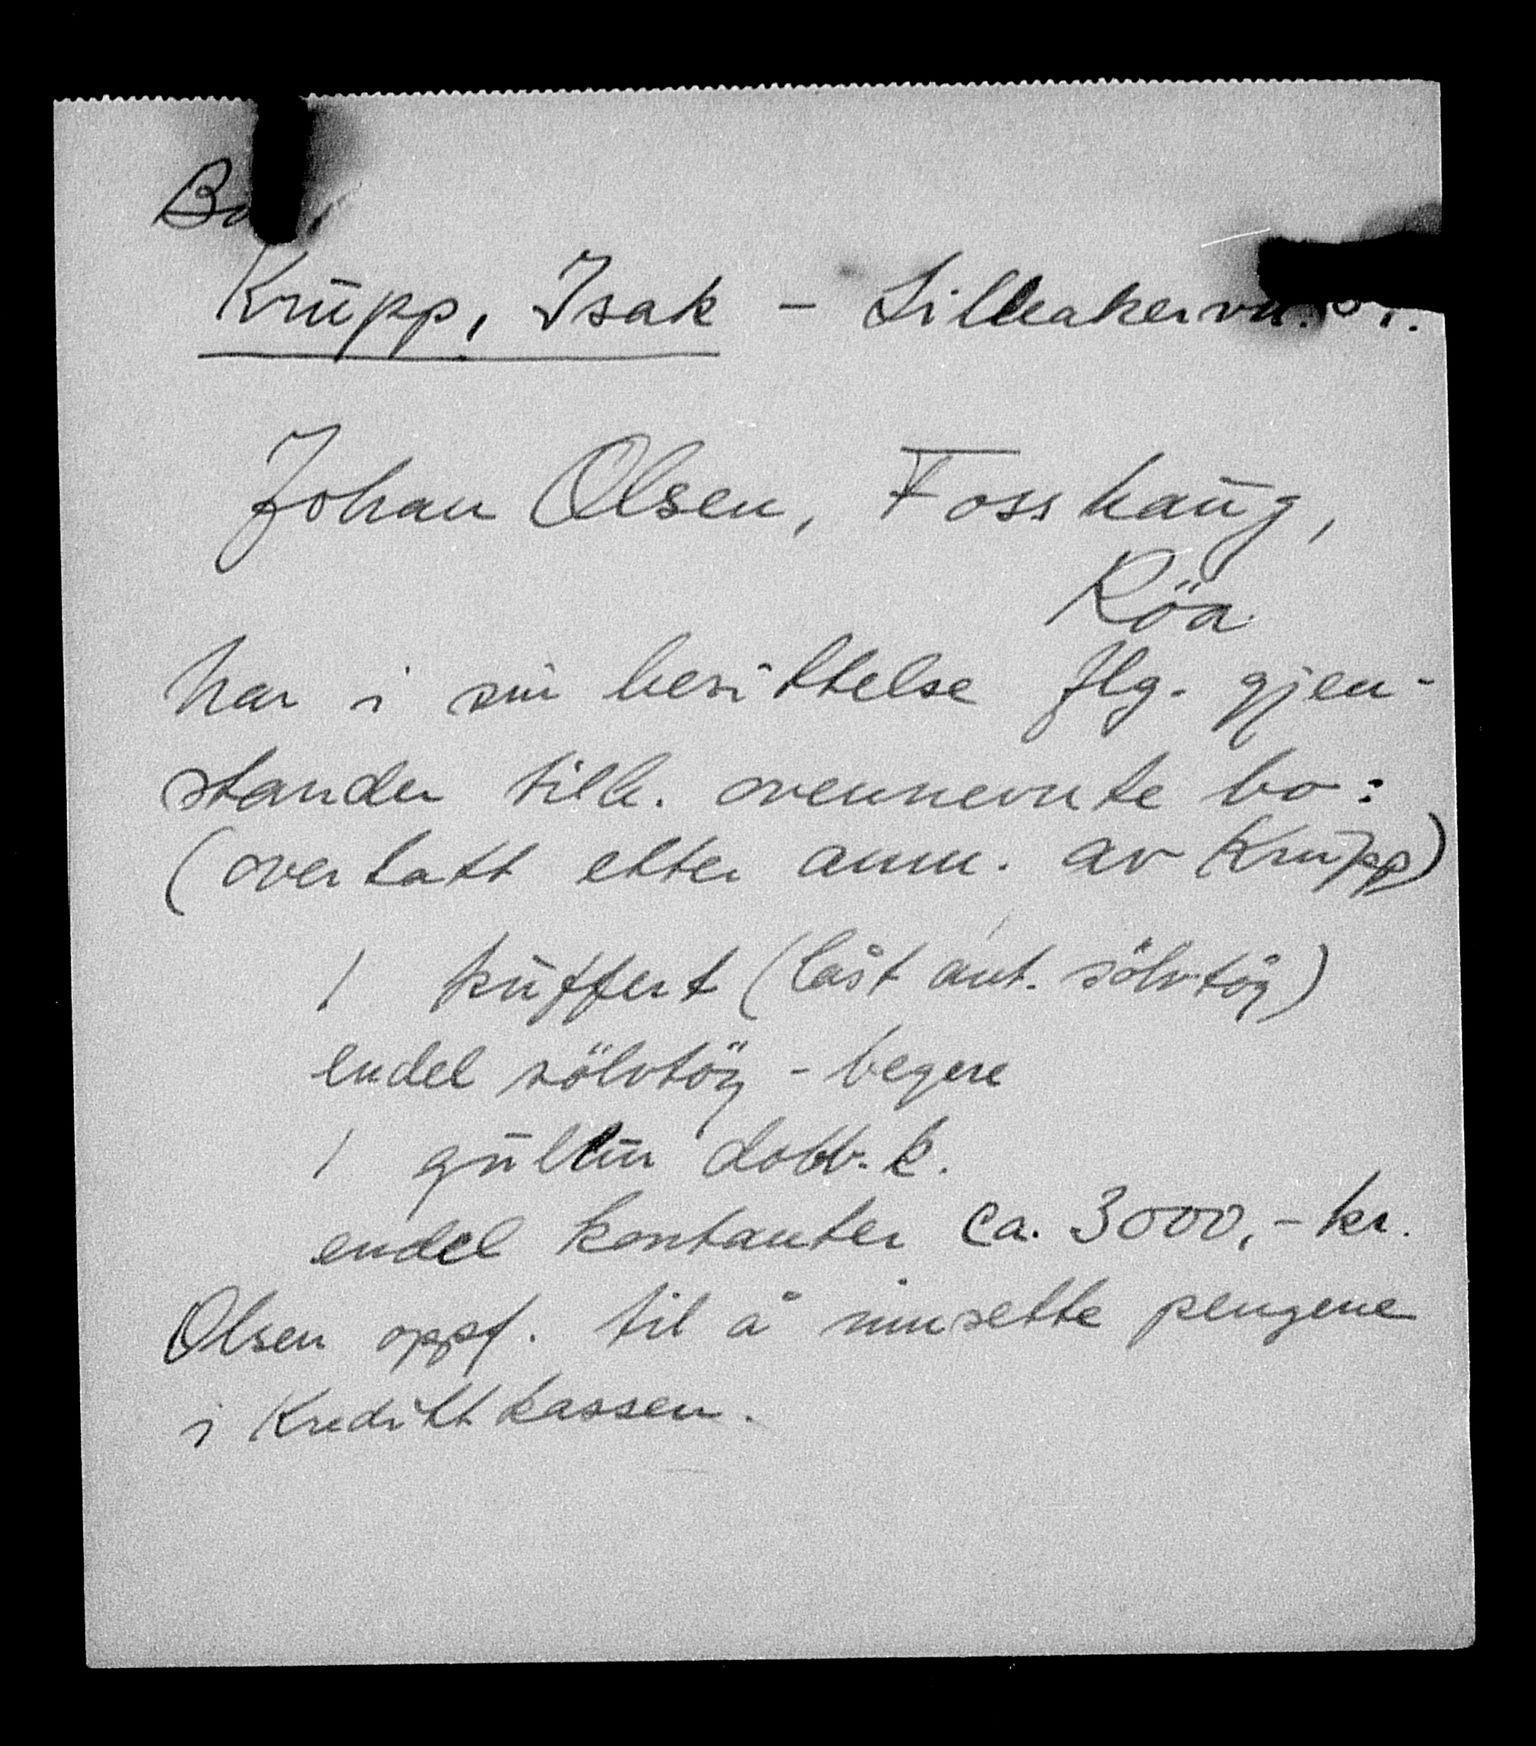 Krupp, Isak – Lilleakervn.
Johan Olsen, Fosshaug,
Röa
har i sin besittelse flg. gjen-
stander tilh. ovennevnte bo:
(overtatt etter anm. av Krupp)
1 kuffert (låst ant. sölvtög)
endel sölvtög - begere
1 gullur dobb. k.
endel kontanter ca. 3000,- kr.
Olsen oppf. til å innsette pengene
i Kredittkassen.